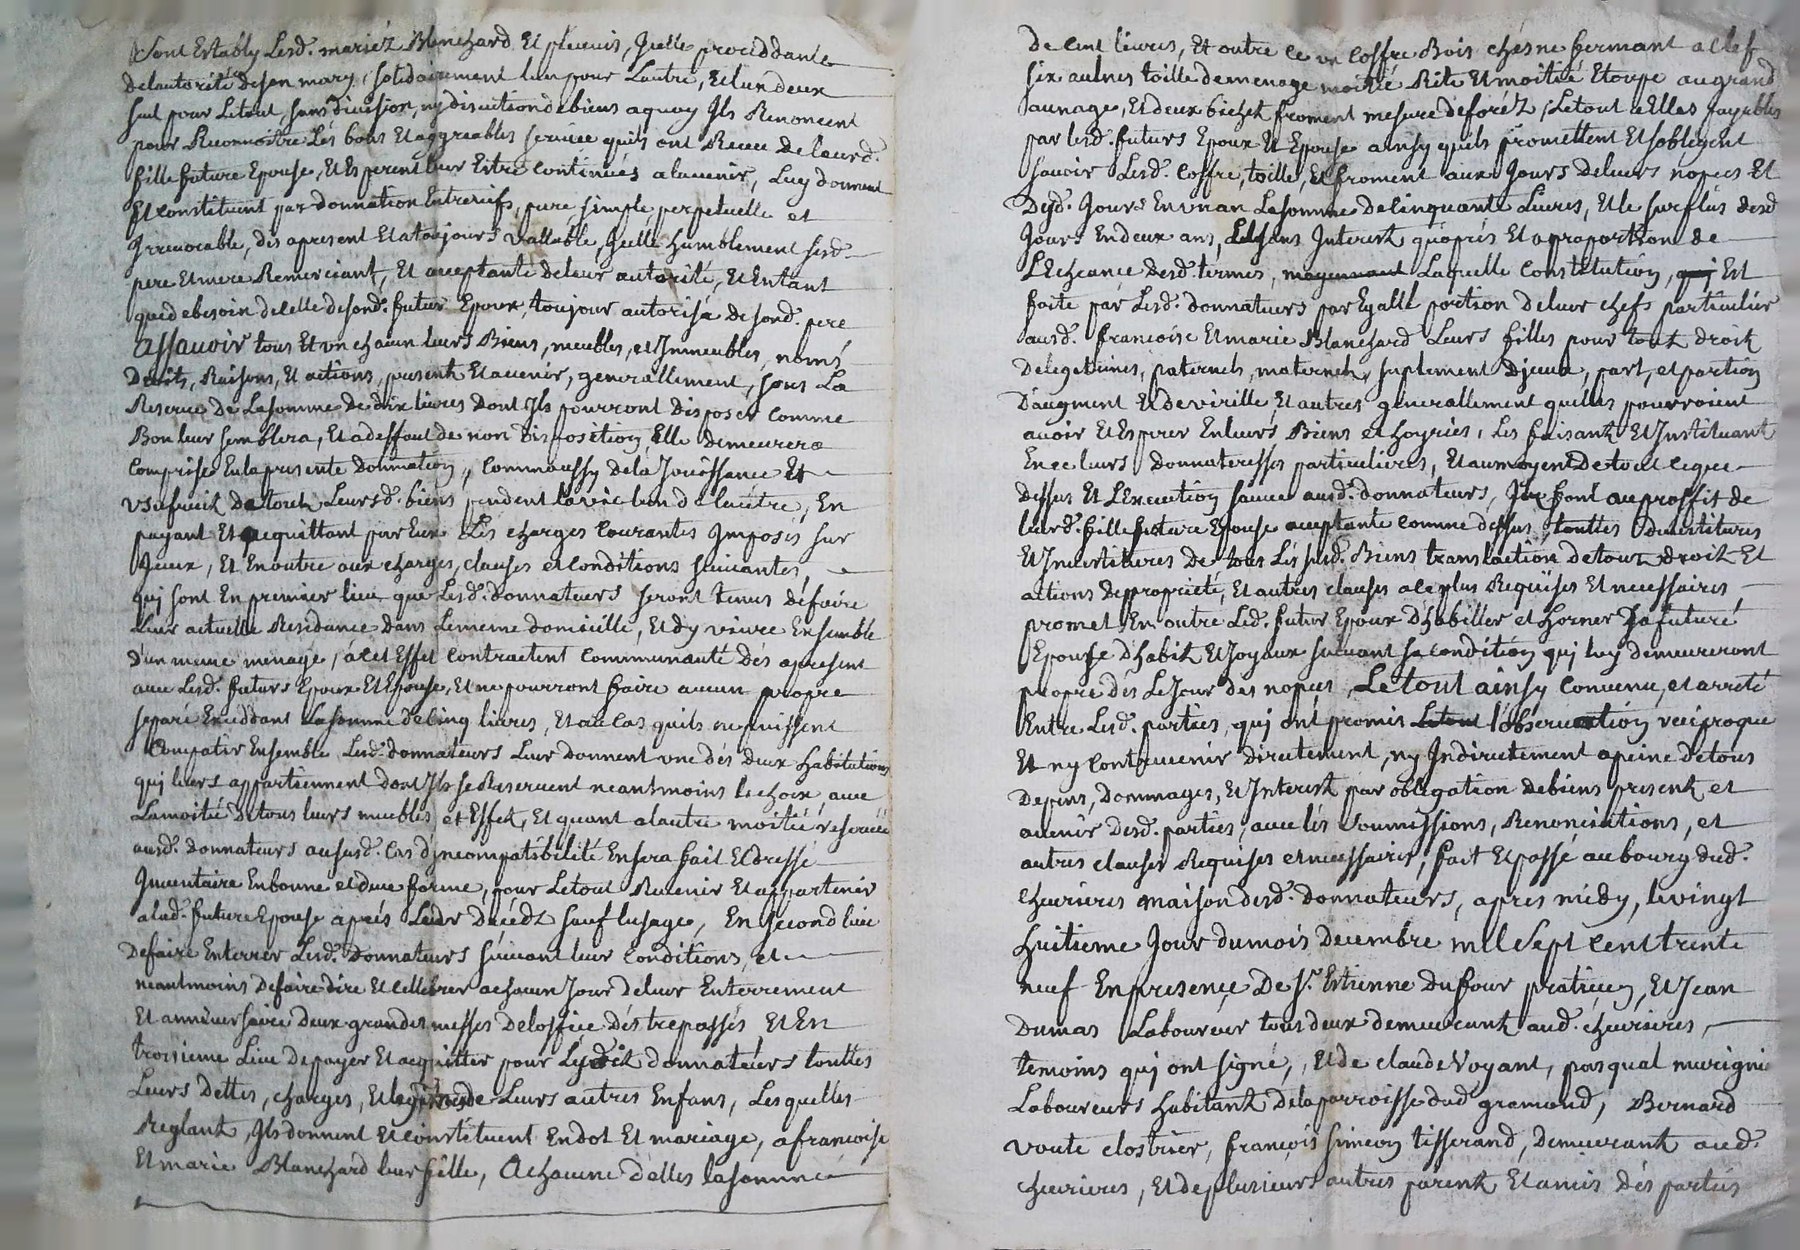 Sont Establys Lesd. mariéz Blanchard Et plevenis, Jcelle proceddante
delautorité deson mary, solidairement lun pour Lautre, Et lun deux
seul pour Letout, sans division, ny discution debiens aquoy Jls Renoncent
pour Reconnoitre Les bons Et aggreables service quils ont Receu de leurd.
fille future Epouse, Et Esperent leur Estre continués alavenir, Luy donnent
Et constituent par donnation Entrevifs, pure, simple, perpetuelle et
Jrrevocable, dés apresent Et atoujours vallable, Jcelle humblement sesd.
pere Et mere Remerciant, Et acceptante deleur autorité, Et Entant
quedebesoin decelle desond. futur Epoux, toujour autorisé de sond. pere
Assavoir tous Et vn chacun leurs Biens, meubles, et Jmmeubles, noms
Droits, Raisons, Et actions, present Et avenir, generallement, sous La
Reserve de Lasomme de dix livres dont Jls pourront disposer comme
Bon leur semblera, Et adeffaut de non disposition Elle demeurera
comprise Enlapresente donnation, commaussy dela Jouissance Et
vsufruit de tout Leursd. biens pendent lavie lun de lautre, En
payant Et acquittant par Eux Les charges courantes Jmposés sur
Jceux, Et Enoutre aux charges, clauses et conditions suivantes,
quj sont En premier lieu que Lesd. donnateurs seront tenus defaire
Leur actuelle Residance dans Lememe domicille, Et dy vivre Ensemble
d'un meme menage, acet Effet contractent communauté dés apresent
avec Lesd. futurs Epoux Et Epouse, Et ne pourront faire aucun propre
separé Exceddant Lasomme decinq livres, Et au cas quils ne puissent
compatir Ensemble Lesd. donnateurs Leur donnent vne dés deux habitations
quj leurs appartiennent dont Jls se Reservent neantmoins le choix, avec
Lamoitié detous leurs meubles et Effet, Et quant alautre moitié reservée
ausd. donnateurs aususd. cas djncompatibilité Ensera fait Et dressé
Jnventaire Enbonne et due forme, pour Letout Revenir Et appartenir
alad. future Epouse aprés Leur decédz sauf lusage, En second lieu
Defaire Enterrer Lesd. Donnateurs suivant leur conditions, et
neantmoins defaire dire Et cellebrer achacun Jour deleur Enterrement
Et anniversaire deux grandes messes deloffice dés trepassés Et En
troisieme Lieu depayer Et acquitter pour Lesdit donnateurs touttes
Leurs dettes, charges, Et legitimes de Leurs autres Enfans, Lesquelles
Reglant, Jls donnent Et constituent En dot Et mariage, afrancoise
Et marie Blanchard leur fille, Achacune d'elles lasomme
De cent livres, Et outre ce vn coffre Bois chesne fermant aclef
six aulnes toille demenage moitié Rite Et moitié Etoupe augrand
aunage, Et deux bichet froment mesure deforéz, Letout aElles payables
par lesd. futurs Epoux Et Epouse ainsy quils promettent Et soblegent
savoir Lesd. coffre, toille, Et froment aux Jours deleurs nopces Et
Desd. Jours En vn an Lasomme de cinquante Livres, Et le surplus desd
Jours Endeux ans, Et sans Jnterest quaprés Et aproportion de
LEcheance desd. termes, moyennant Laquelle constitution, quj Est
faite par Lesd. donnateurs par Egalle portion deleur chefs particulier
ausd. francoise Et marie Blanchard Leurs filles pour tout droit
Delegitimes, paternels, maternels, suplement djceux, part, et portion
D'augment Et de virille, Et autres generallement quelles pourroient
avoir Et Esperer Enleurs Biens et hoyries, Les faisant Et Jnstituant
En ce leurs donnateresses particulieres, Et aumoyen Detout ceque
dessus Et L'Execution sauve ausd. donnateurs, Jls font auproffit de
leurd. fille future Epouse acceptante comme dessus, touttes Devestitures
Et Jnvestitures De tous Lés susd. Biens translaction detout droit Et
actions depropriété, Et autres clauses ace plus Requises Et necessaires
promet En outre Led. futur Epoux d'habiller et horner Safuture
Epouse d'habit Et Joyaux suivant sa condition quj luy demeureront
propre dés LeJour des nopces, Letout ainsy convenu, et arreté
Entre Lesd. parties, quj ont promis Letout l'observation reciproque
Et ny contrevenir directement, ny Jndirectement apeine detous
Depens, Dommages, Et Jnterest par obligation debiens present et
avenir desd. parties, avec lés soumissions, Renonciations, et
autres clauses Requises et necessaires, fait Et passé aubourg dud.
chevrieres maison desd. donnateurs, apres midy, levingt
huitieme Jour dumois Decembre mil sept cent trente
neuf Enpresence De Sr. Estienne duffour praticien, Et Jean
Dumas Laboureur tous deux demeurant aud. chevrieres,
temoins quj ont signé, Et de claude Voyant, pasqual murigni
Laboureurs habitant delaparroisse dud gramond, Bernard
Voute clostrier, françois simeon tisserand, demeurant aud.
chevrieres, Et deplusieurs autres parent Et amis dés parties